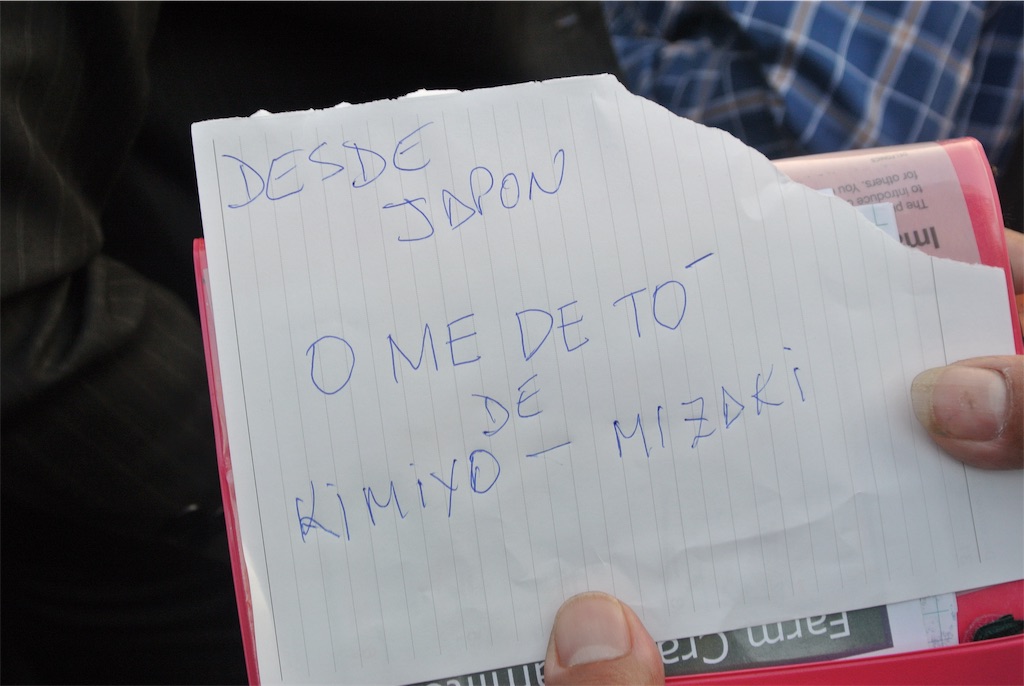 DESDE
JAPON
O ME DE TO-
DE
KIMIYO - MIZAKI
The p
to introduce
for others. You
Im
Farm Cra